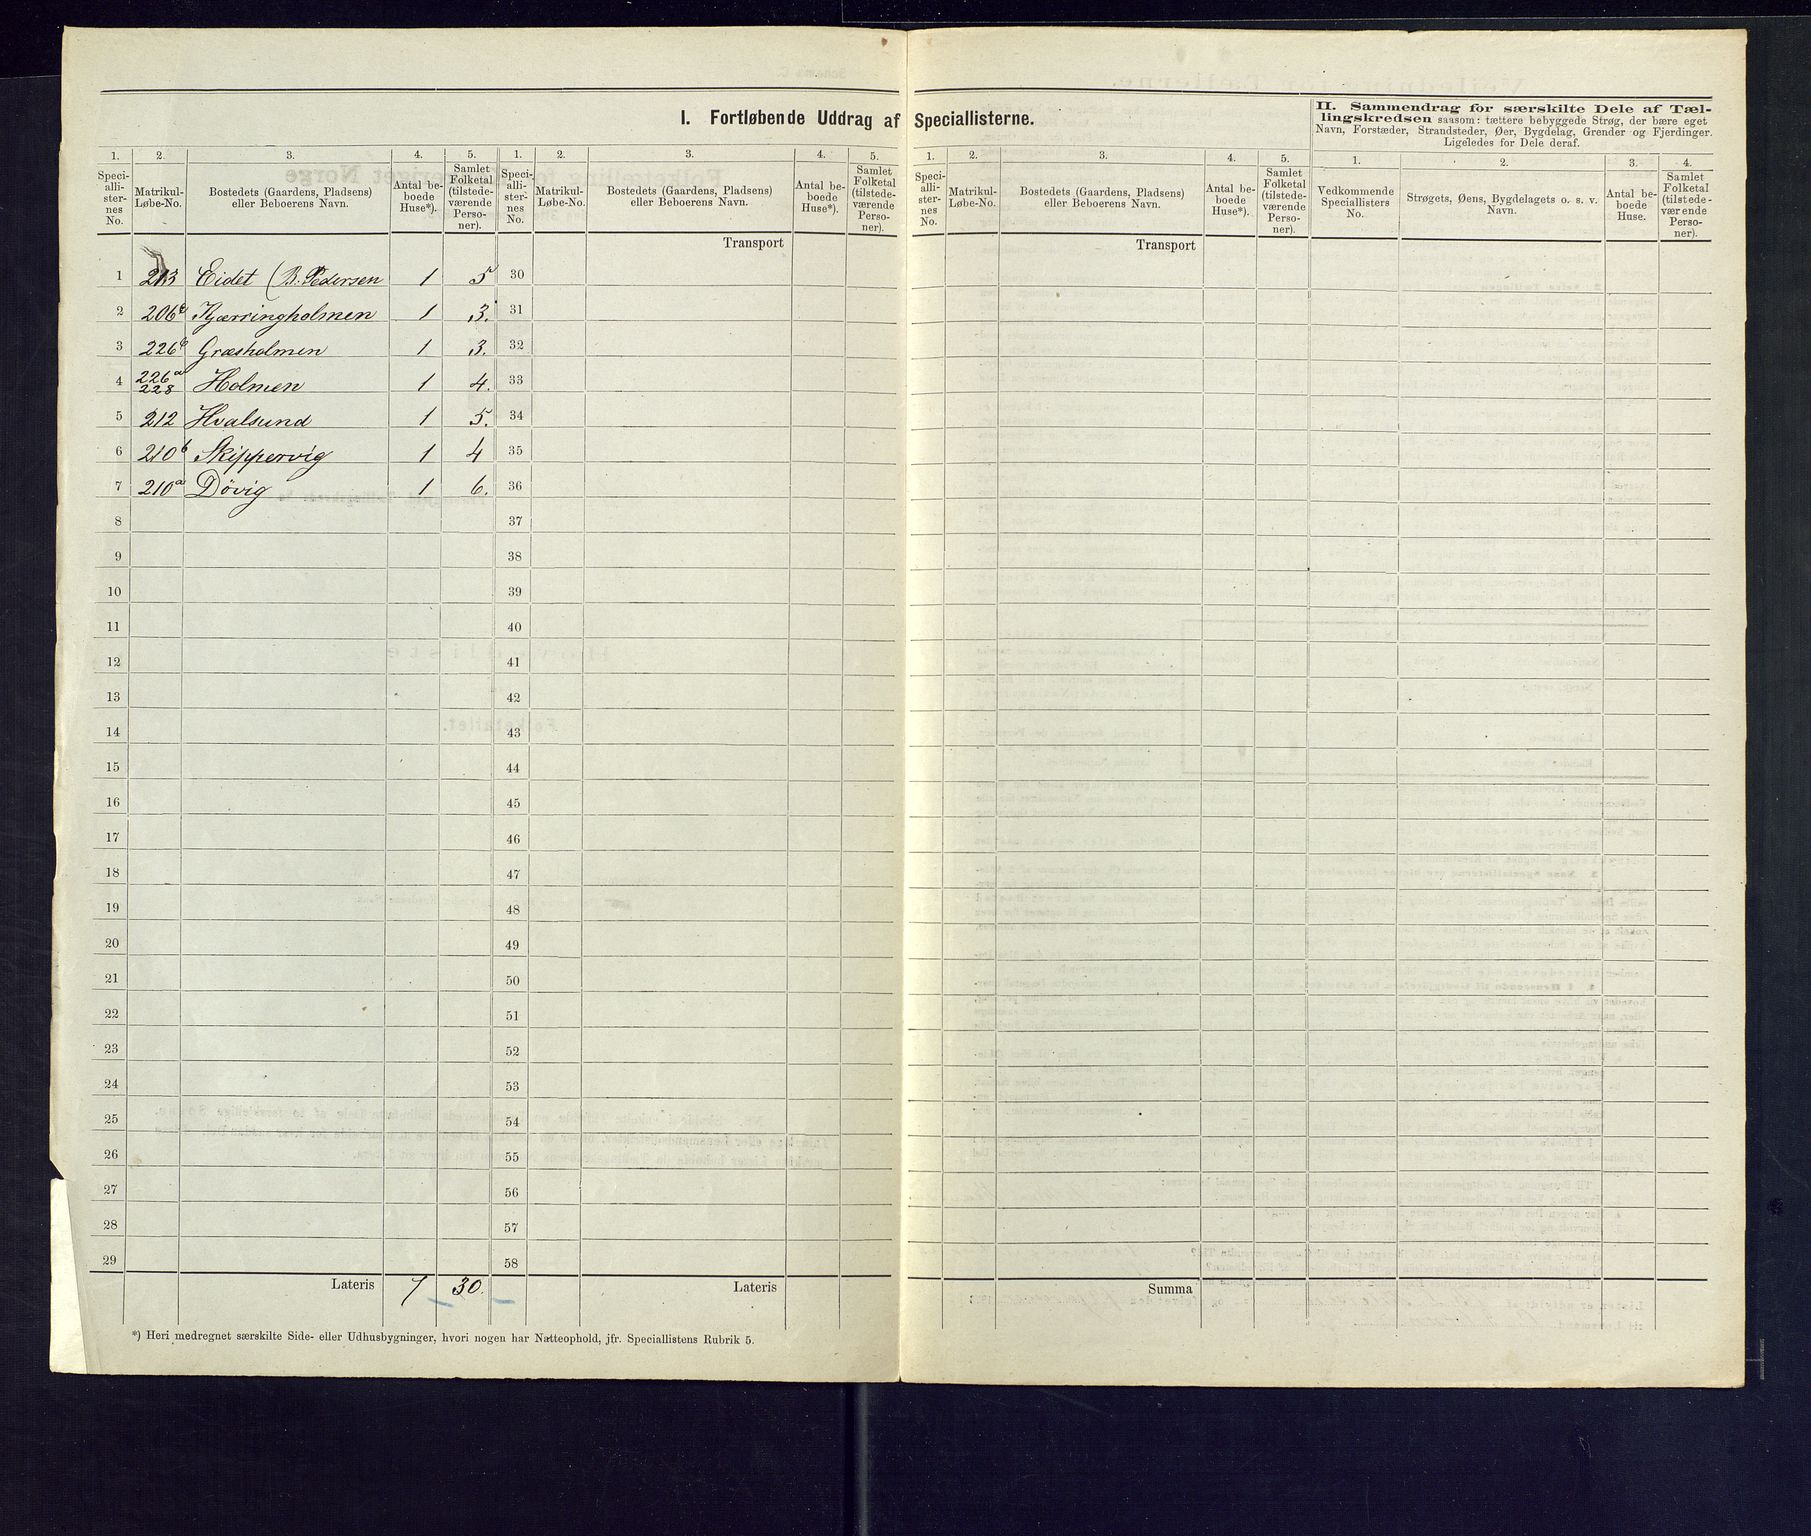 I. Fortløbende Uddrag af Speciallisterne.
II. Sammendrag for særskilte Dele af Tællingskredsen saasom: tættere bebyggede Strøg, der bære eget
Navn, Forstæder, Strandsteder, Øer, Bygdelag, Grender og Fjerdinger.
Ligeledes for Dele deraf.
1. 2. 3. 4. 5. 1. 2. 3. 4. 5. 1. 2. 3. 4. 5. 1. 2. 3. 4.
Speciallisternes No. Matrikul-Løbe-No. Bostedets (Gaardens, Pladsens) eller Beboerens Navn. Antal beboede Huse*). Samlet Folketal (tilstedeværende Personer).
Speciallisternes No. Matrikul-Løbe-No. Bostedets (Gaardens, Pladsens) eller Beboerens Navn. Antal beboede Huse*). Samlet Folketal (tilstedeværende Personer).
Speciallisternes No. Matrikul-Løbe-No. Bostedets (Gaardens, Pladsens) eller Beboerens Navn. Antal beboede Huse*). Samlet Folketal (tilstedeværende Personer).
Vedkommende Speciallisters No. Strøgets, Øens, Bygdelagets o. s. v. Navn. Antal beboede Huse. Samlet Folketal (tilstedeværende Personer).
Transport Transport
1 213 Eidet (B. Pedersen 1 5 30
2 206 Kjærringholmen 1 3. 31
3 226 Græsholmen 1 3. 32
4 226a 228 Holmen 1 4. 33
5 212 Hvalsund 1 5. 34
6 210b Skippervig 1 4 35
7 210a Døvig 1 6. 36
8 37
9 38
10 39
11 40
12 41
13 42
14 43
15 44
16 45
17 46
18 47
19 48
20 49
21 50
22 51
23 52
24 53
25 54
26 55
27 56
28 57
29 58
Lateris 7 30. Lateris Summa
*) Heri medregnet særskilte Side- eller Udhusbygninger, hvori nogen har Natteophold, jfr. Speciallistens Rubrik 5.